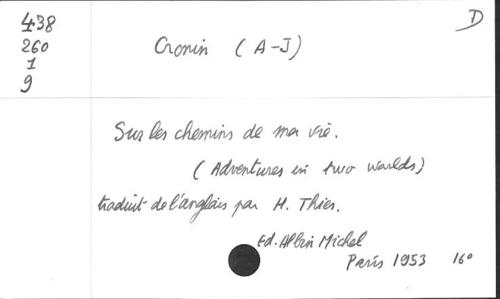 438
260
1
9
D
Cronin (A-J)
Sur les chemins de ma vie.
(Adventures in two worlds)
traduit de l'anglais par H. Thies.
Ed. Albin Michel
Paris 1953 16°